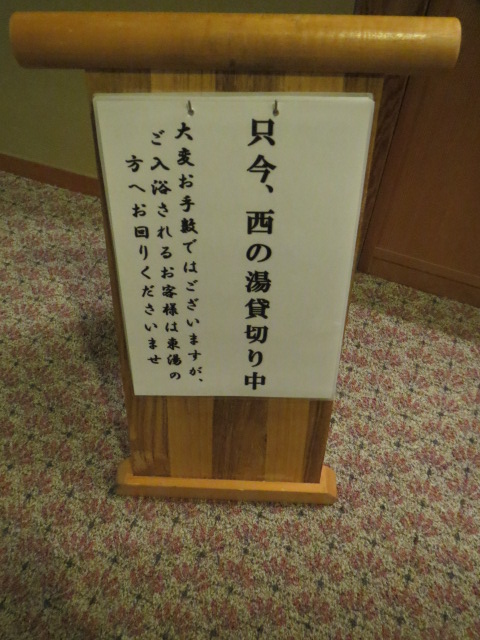 只今、西の湯貸切り中
大変お手数ではございますが、
ご入浴されるお客様は東湯の
方へお回りくださいませ